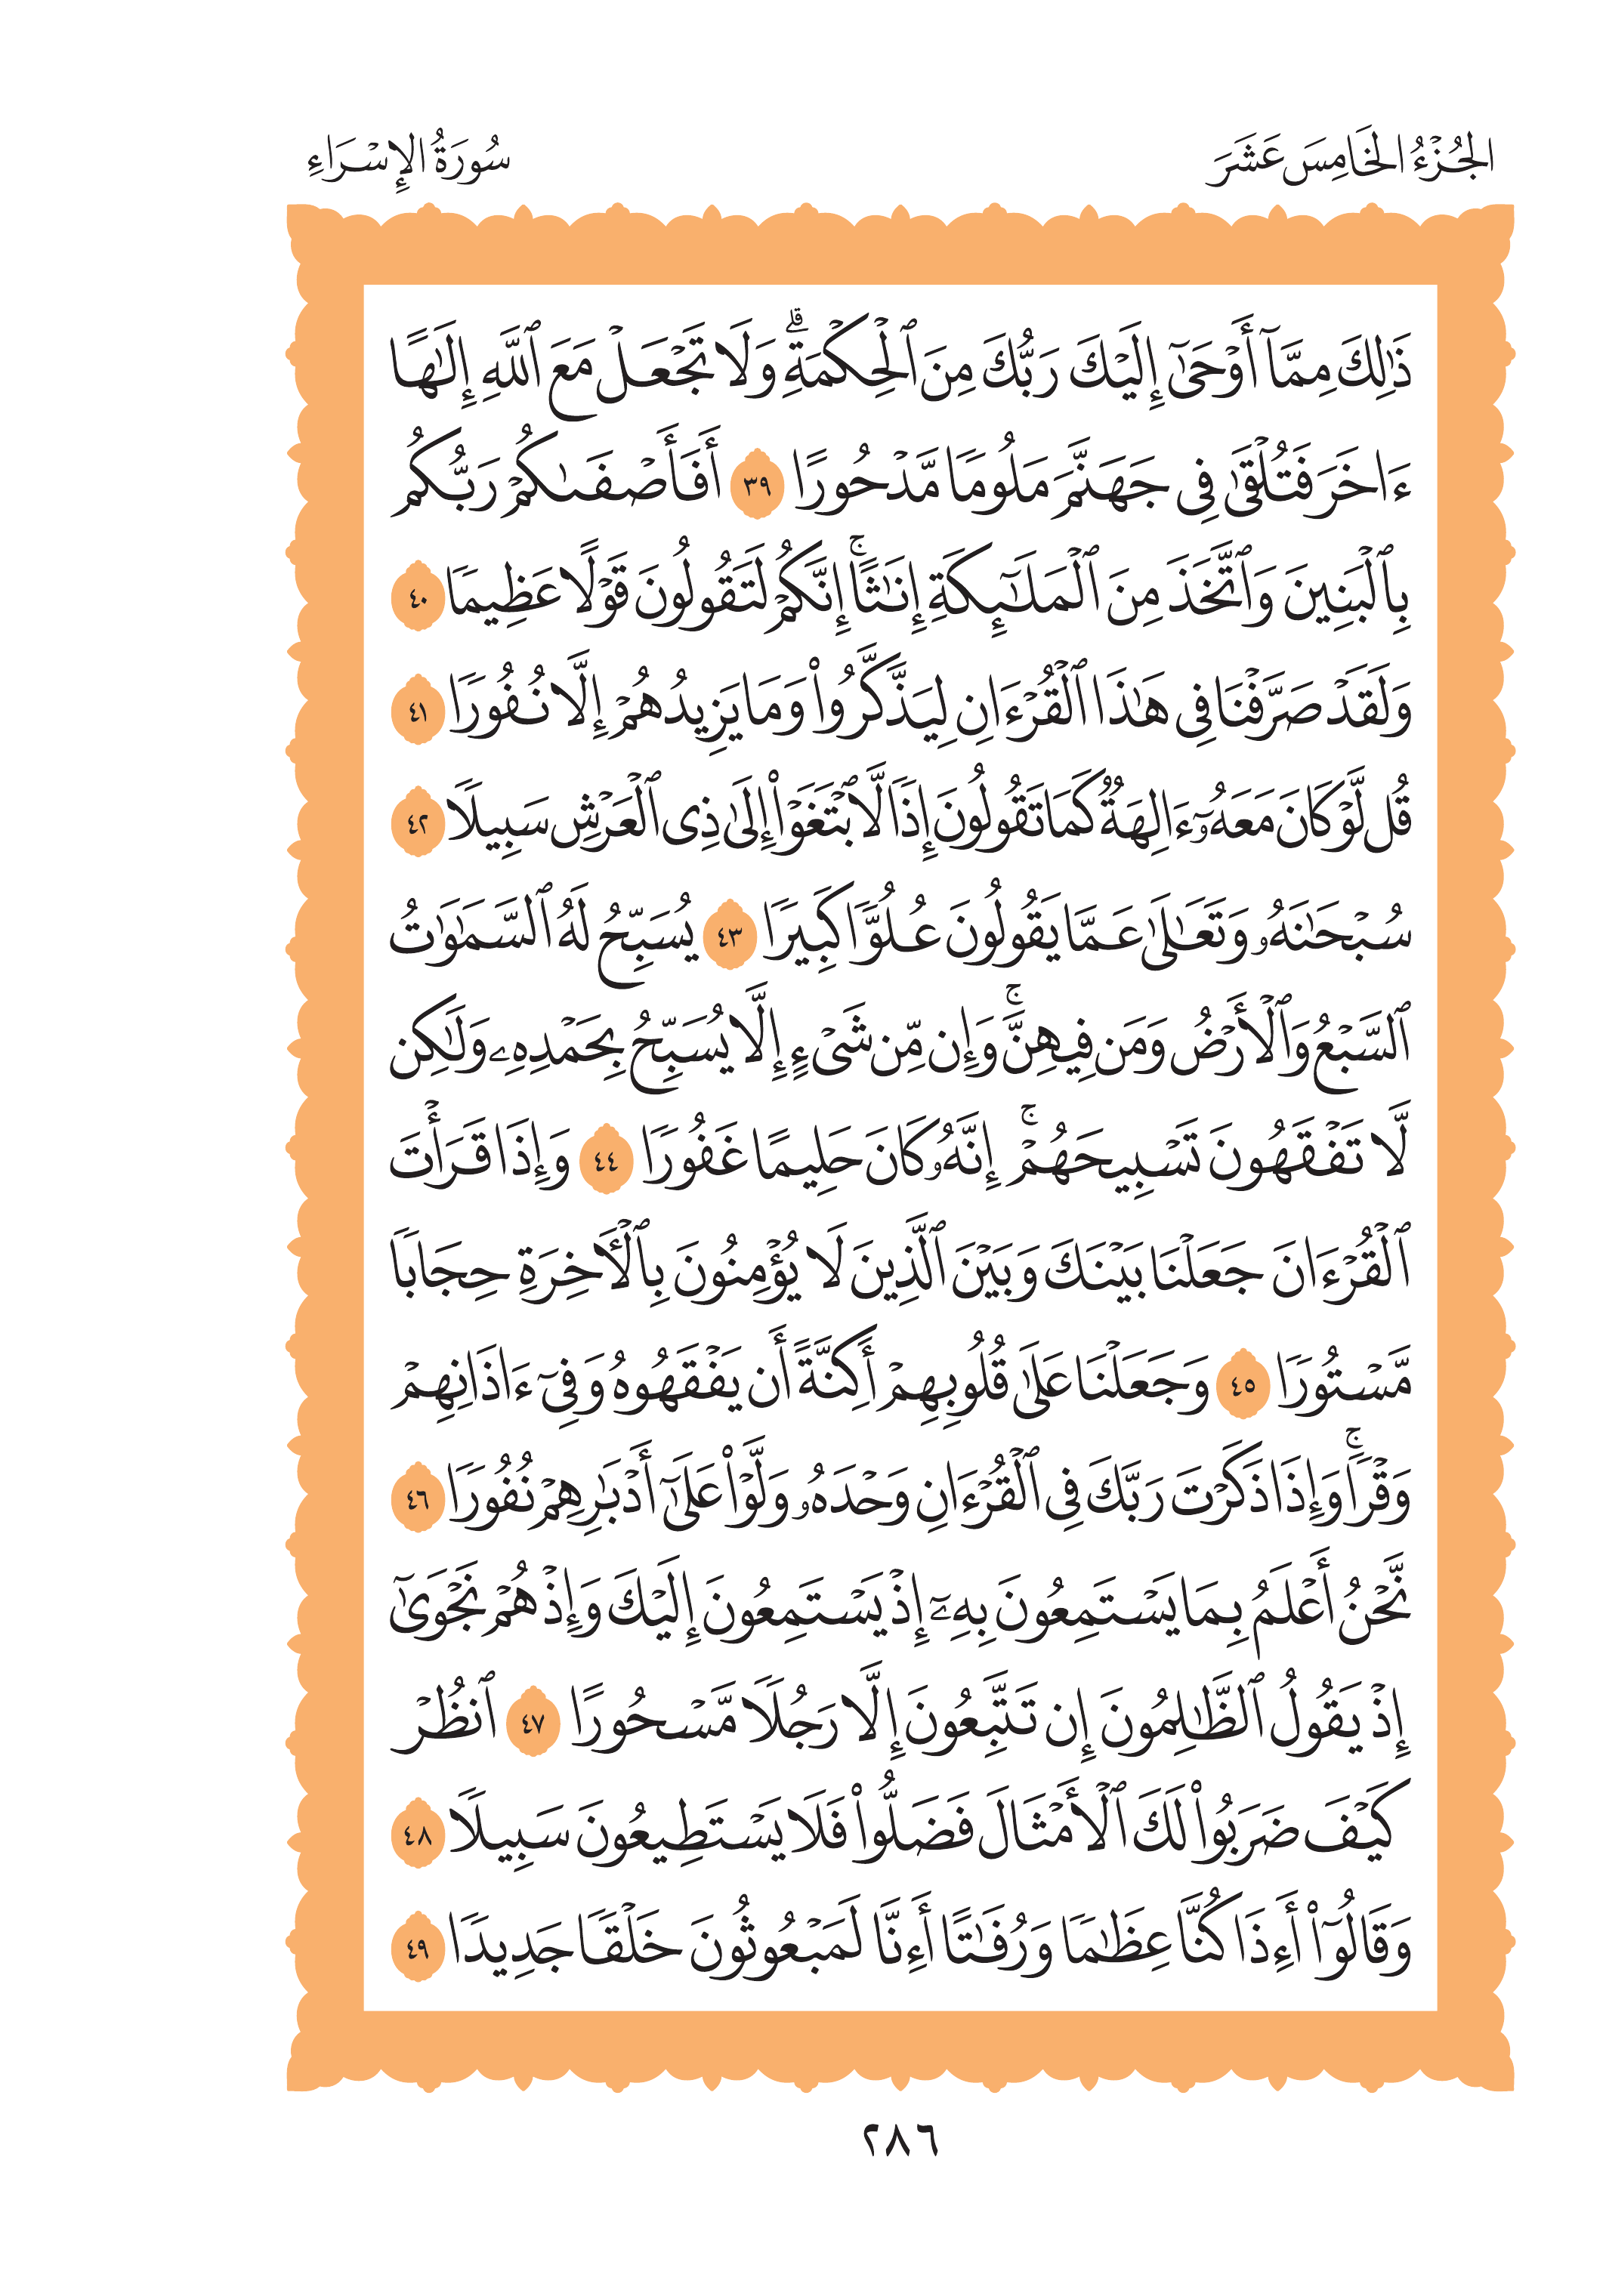 الجُزْءُ الخَامِسَ عَشَرَ
سُورَةُ الإِسْرَاءِ
ذَٰلِكَ مِمَّآ أَوْحَىٰٓ إِلَيْكَ رَبُّكَ مِنَ ٱلْحِكْمَةِۗ وَلَا تَجْعَلْ مَعَ ٱللَّهِ إِلَٰهًا
ءَاخَرَ فَتُلْقَىٰ فِى جَهَنَّمَ مَلُومًا مَّدْحُورًا ٣٩ أَفَأَصْفَىٰكُمْ رَبُّكُم
بِٱلْبَنِينَ وَٱتَّخَذَ مِنَ ٱلْمَلَٰٓئِكَةِ إِنَٰثًاۚ إِنَّكُمْ لَتَقُولُونَ قَوْلًا عَظِيمًا ٤٠
وَلَقَدْ صَرَّفْنَا فِى هَٰذَا ٱلْقُرْءَانِ لِيَذَّكَّرُوا۟ وَمَا يَزِيدُهُمْ إِلَّا نُفُورًا ٤١
قُل لَّوْ كَانَ مَعَهُۥٓ ءَالِهَةٌ كَمَا تَقُولُونَ إِذًا لَّٱبْتَغَوْا۟ إِلَىٰ ذِى ٱلْعَرْشِ سَبِيلًا ٤٢
سُبْحَٰنَهُۥ وَتَعَٰلَىٰ عَمَّا يَقُولُونَ عُلُوًّا كَبِيرًا ٤٣ يُسَبِّحُ لَهُ ٱلسَّمَٰوَٰتُ
ٱلسَّبْعُ وَٱلْأَرْضُ وَمَن فِيهِنَّۚ وَإِن مِّن شَىْءٍ إِلَّا يُسَبِّحُ بِحَمْدِهِۦ وَلَٰكِن
لَّا تَفْقَهُونَ تَسْبِيحَهُمْۚ إِنَّهُۥ كَانَ حَلِيمًا غَفُورًا ٤٤ وَإِذَا قَرَأْتَ
ٱلْقُرْءَانَ جَعَلْنَا بَيْنَكَ وَبَيْنَ ٱلَّذِينَ لَا يُؤْمِنُونَ بِٱلْءَاخِرَةِ حِجَابًا
مَّسْتُورًا ٤٥ وَجَعَلْنَا عَلَىٰ قُلُوبِهِمْ أَكِنَّةً أَن يَفْقَهُوهُ وَفِىٓ ءَاذَانِهِمْ
وَقْرًاۚ وَإِذَا ذَكَرْتَ رَبَّكَ فِى ٱلْقُرْءَانِ وَحْدَهُۥ وَلَّوْا۟ عَلَىٰٓ أَدْبَٰرِهِمْ نُفُورًا ٤٦
نَّحْنُ أَعْلَمُ بِمَا يَسْتَمِعُونَ بِهِۦٓ إِذْ يَسْتَمِعُونَ إِلَيْكَ وَإِذْ هُمْ نَجْوَىٰٓ
إِذْ يَقُولُ ٱلظَّٰلِمُونَ إِن تَتَّبِعُونَ إِلَّا رَجُلًا مَّسْحُورًا ٤٧ ٱنظُرْ
كَيْفَ ضَرَبُوا۟ لَكَ ٱلْأَمْثَالَ فَضَلُّوا۟ فَلَا يَسْتَطِيعُونَ سَبِيلًا ٤٨
وَقَالُوٓا۟ أَءِذَا كُنَّا عِظَٰمًا وَرُفَٰتًا أَءِنَّا لَمَبْعُوثُونَ خَلْقًا جَدِيدًا ٤٩
٢٨٦